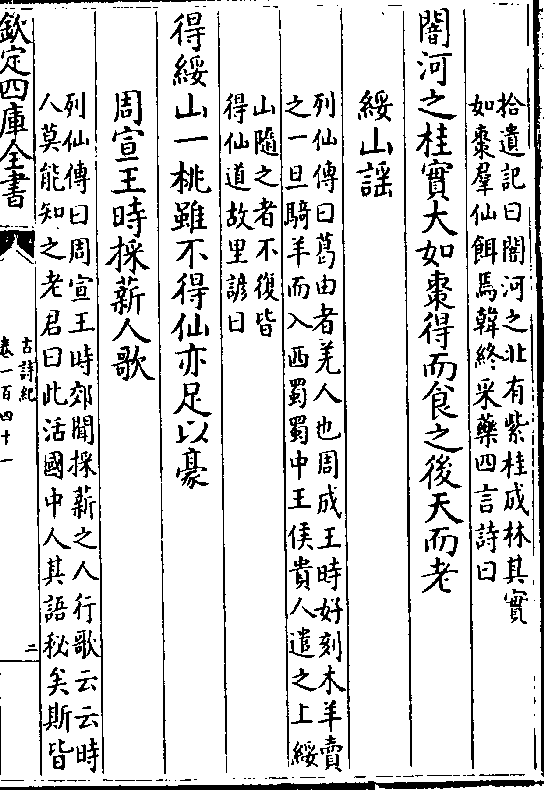 拾遺記曰闇河之北有紫桂成林其實
如棗羣仙餌焉韓終采藥四言詩曰
闇河之桂實大如棗得而食之後天而老
綏山謡
列仙傳曰葛由者羌人也周成王時好刻木羊賣
之一旦騎羊而入西蜀蜀中王侯貴人遣之上綏
山隨之者不復皆
得仙道故里諺曰
得綏山一桃雖不得仙亦足以豪
周宣王時採薪人歌
列仙傳曰周宣王時郊聞採薪之人行歌云云時
人莫能知之老君曰此活國中人其語秘矣斯皆
欽定四庫全書
古詩紀
卷一百四十一
二